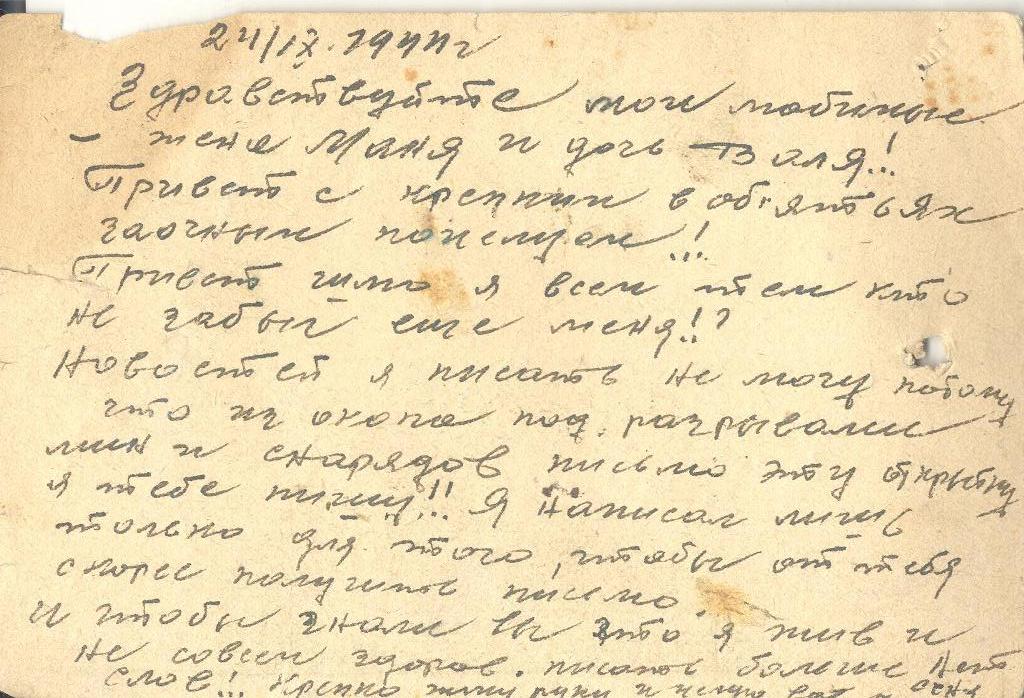 24/IX.1944г
Здравствуйте мои любимые
- жена Маня и дочь Валя!..
Привет с крепким в об'ятьях
заочным поцелуем!..
Привет шлю я всем тем кто
не забыл еще меня!.?
Новостей я писать не могу потому
что из окопа под разрывами
мин и снарядов письмо эту открытку
я тебе пишу!!. Я написал лишь
только для того, чтобы от тебя
скорее получить письмо.
и чтобы знали вы что я жив и
не совсем здоров. писать больше нет
слов!.. Крепко жму руки и целую вас